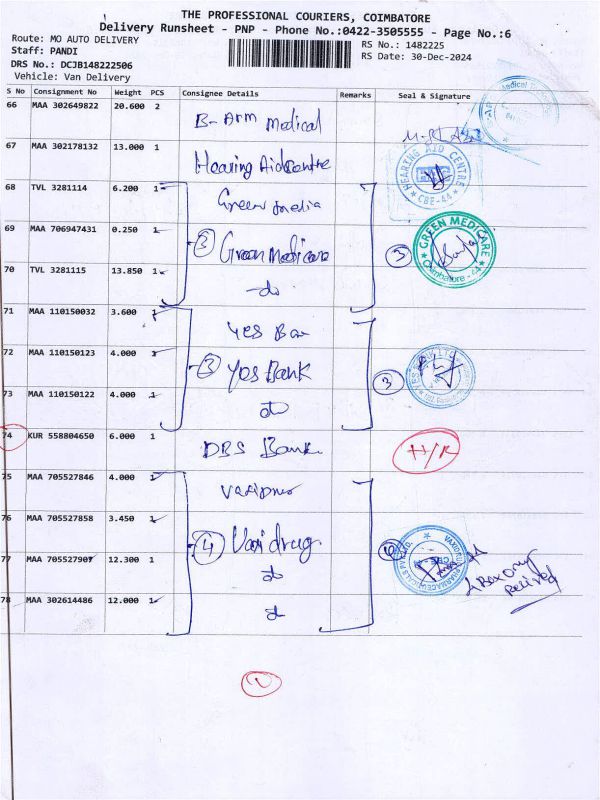 THE PROFESSIONAL COURIERS, COIMBATORE
Delivery Runsheet - PNP - Phone No.:0422-3505555 - Page No.:6
Route: MO AUTO DELIVERY
Staff: PANDI
DRS No.: DCJB148222506
Vehicle: Van Delivery
RS No.: 1482225
RS Date: 30-Dec-2024
S No Consignment No Weight PCS Consignee Details Remarks Seal & Signature
66 MAA 302649822 20.600 2 B-Arm Medical
67 MAA 302178132 13.000 1 Hearing Aid Centre
HEARING AID CENTRE
CBE-44
68 TVL 3281114 6.200 1 Green
69 MAA 706947431 0.250 1 3 Green Medicare 3
GREEN MEDICARE
Coimbatore - 44
70 TVL 3281115 13.850 1 -do-
71 MAA 110150032 3.600 1 Yes Ban
72 MAA 110150123 4.000 1 3 Yes Bank 3
73 MAA 110150122 4.000 1 do
74 KUR 558804650 6.000 1 DBS Bank H/R
75 MAA 705527846 4.000 1
76 MAA 705527858 3.450 1 4 Vaxidrug
77 MAA 705527907 12.300 1 do
4 Box only
Recived
78 MAA 302614486 12.000 1 do
1